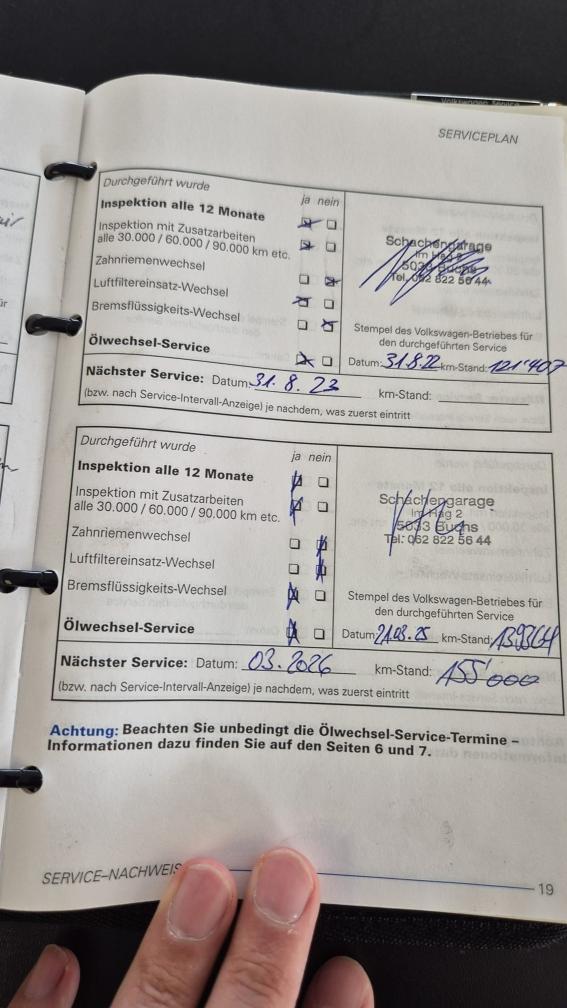 SERVICEPLAN
Durchgeführt wurde
ja nein
Inspektion alle 12 Monate
Inspektion mit Zusatzarbeiten
alle 30.000 / 60.000 / 90.000 km etc.
Zahnriemenwechsel
Luftfiltereinsatz-Wechsel
Bremsflüssigkeits-Wechsel
Ölwechsel-Service
Schachengarage
Im Hag 2
5033 Buchs
Tel. 062 822 56 44
Stempel des Volkswagen-Betriebes für
den durchgeführten Service
Datum: 31.8.22 km-Stand: 121'407
Nächster Service: Datum: 31.8.23 km-Stand:
(bzw. nach Service-Intervall-Anzeige) je nachdem, was zuerst eintritt
Durchgeführt wurde
ja nein
Inspektion alle 12 Monate
Inspektion mit Zusatzarbeiten
alle 30.000 / 60.000 / 90.000 km etc.
Zahnriemenwechsel
Luftfiltereinsatz-Wechsel
Bremsflüssigkeits-Wechsel
Ölwechsel-Service
Schachengarage
Im Hag 2
5033 Buchs
Tel: 062 822 56 44
Stempel des Volkswagen-Betriebes für
den durchgeführten Service
Datum: 21.03.25 km-Stand:
Nächster Service: Datum: 03.2026 km-Stand: 155'000
(bzw. nach Service-Intervall-Anzeige) je nachdem, was zuerst eintritt
Achtung: Beachten Sie unbedingt die Ölwechsel-Service-Termine –
Informationen dazu finden Sie auf den Seiten 6 und 7.
SERVICE–NACHWEIS
19